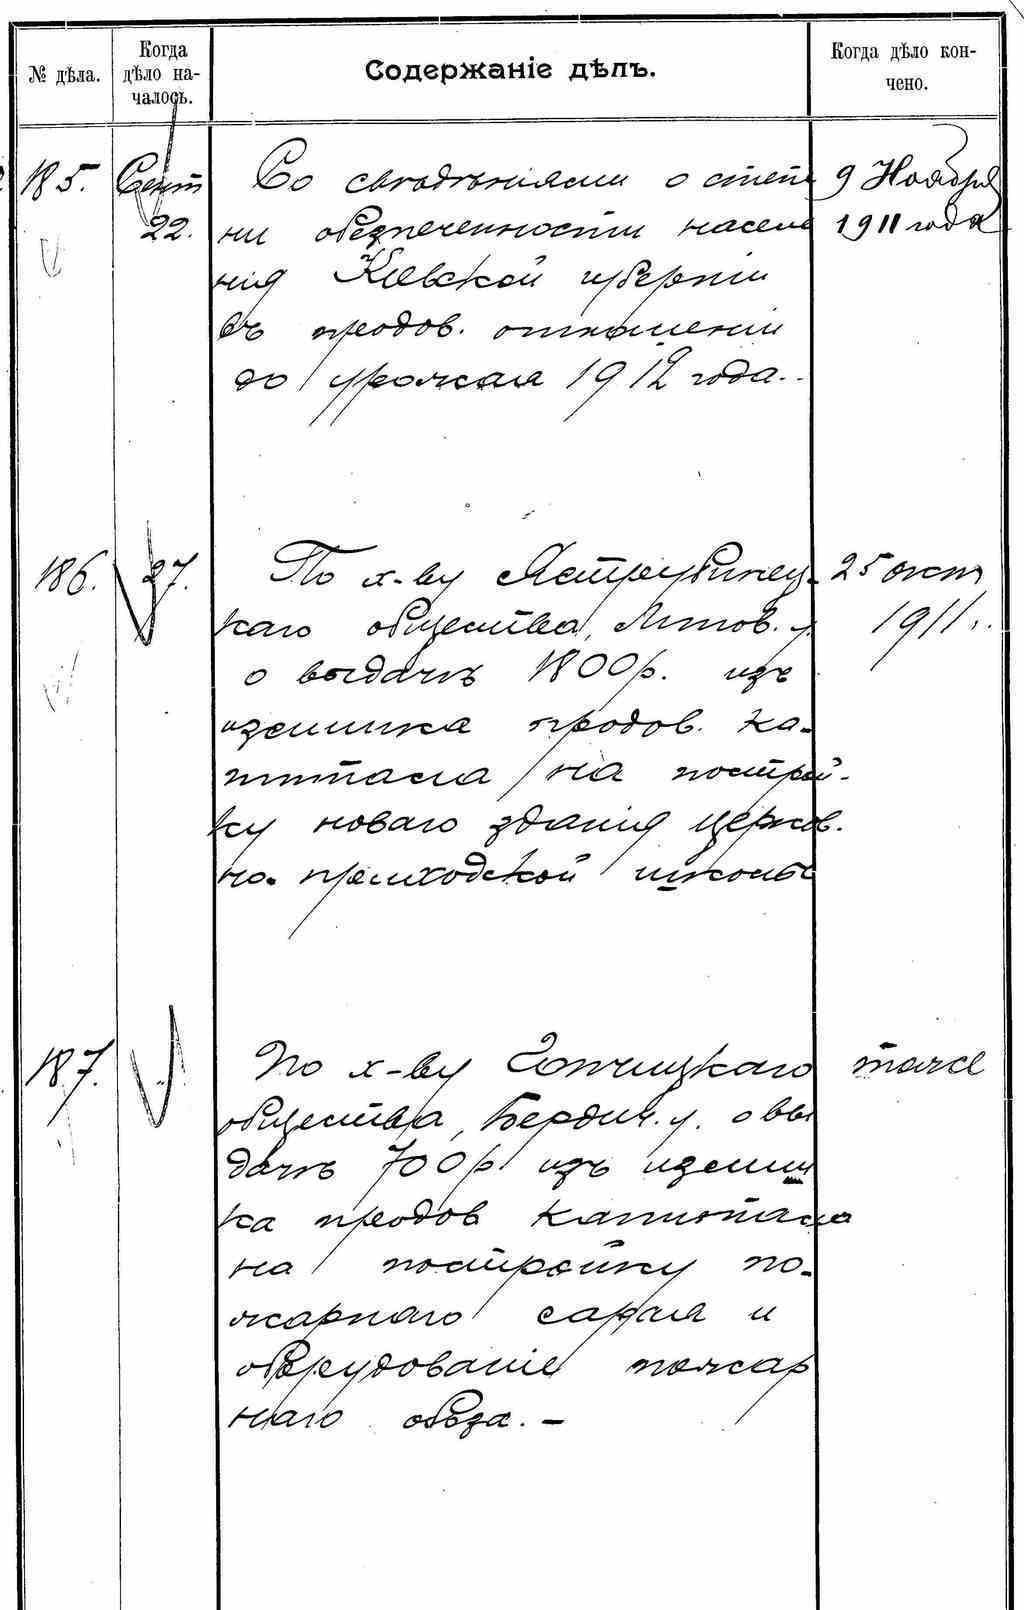 № дѣла.
Когда
дѣло на-
чалось.
Содержаніе дѣлъ.
Когда дѣло кон-
чено.
185.
Сент
22.
Со свѣдѣніями о степе
ни обезпеченности населе
нія Кіевской губерніи
въ продов. отношеніи
до урожая 1912 года.
9 Ноября
1911 года
186.
27.
По х-ву Яструбинец-
каго общества, Липов. у.
о выдачѣ 1800р. изъ
излишка продов. ка-
питала на построй-
ку новаго зданія церков.
но-приходской школы
25 окт
1911 г.
187.
По х-ву Гопчицкаго
общества, Бердич. у. о вы
дачѣ 700р изъ излиш
ка продов капитала
на постройку по-
жарнаго сарая и
оборудованіе пожар
наго обоза. –
тоже